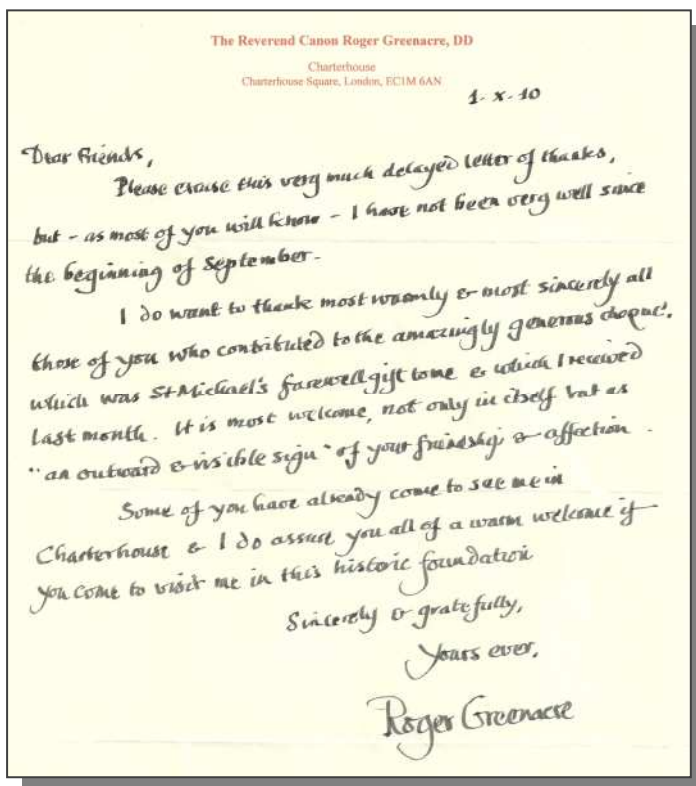 The Reverend Canon Roger Greenacre, DD
Charterhouse
Charterhouse Square, London, EC1M 6AN
1. x. 10
Dear Friends,
Please excuse this very much delayed letter of thanks,
but - as most of you will know - I have not been very well since
the beginning of September.
I do want to thank most warmly & most sincerely all
those of you who contributed to the amazingly generous cheque,
which was St Michael's farewell gift to me & which I received
last month. It is most welcome, not only in itself but as
"an outward & visible sign" of your friendship & affection.
Some of you have already come to see me in
Charterhouse & I do assure you all of a warm welcome if
you come to visit me in this historic foundation
Sincerely & gratefully,
Yours ever,
Roger Greenacre